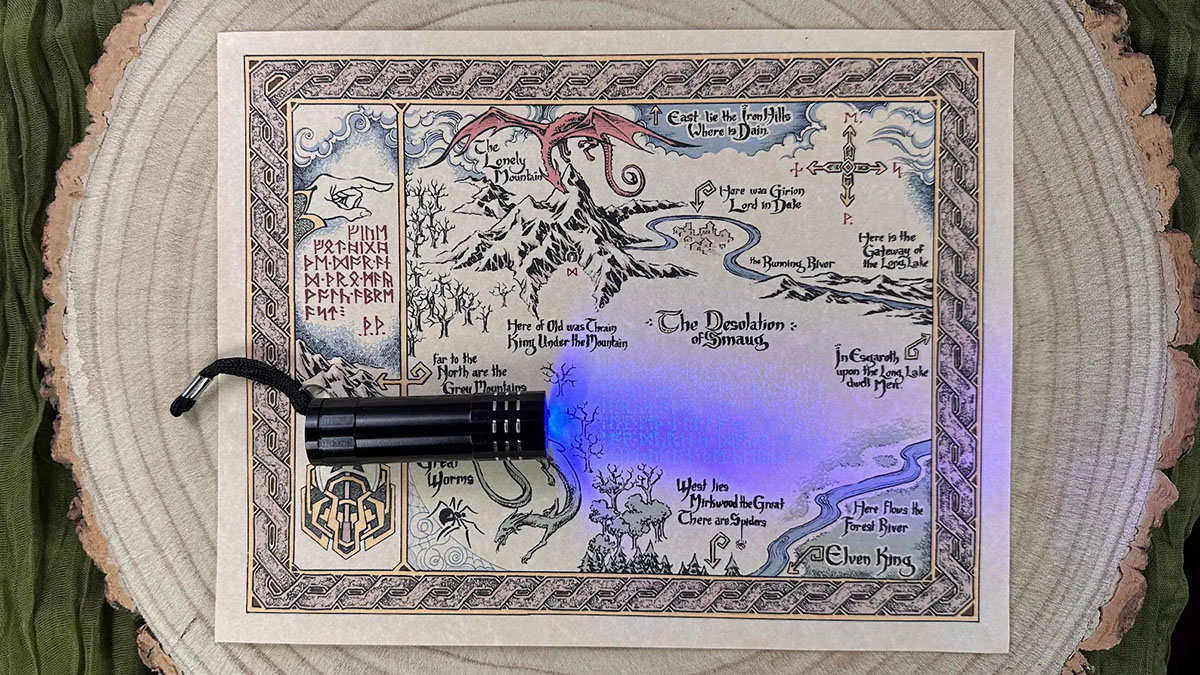 East lie the Iron Hills
Where is Dain.
The
Lonely
Mountain
ᛖ
ᚾ
ᛋ
ᚹ
Here was Girion
Lord in Dale
ᚠᛁᚢᛖ
Here is the
Gateway of
the Long Lake
the Running River
ᛞ
Here of Old was Thrain
King Under the Mountain
The Desolation
of Smaug
ᚦ.ᚦ.
Far to the
North are the
Grey Mountains
In Esgaroth
upon the Long Lake
dwell Men.
Great
Worms
West lies
Mirkwood the Great
There are Spiders
Here flows the
Forest River
Elven King